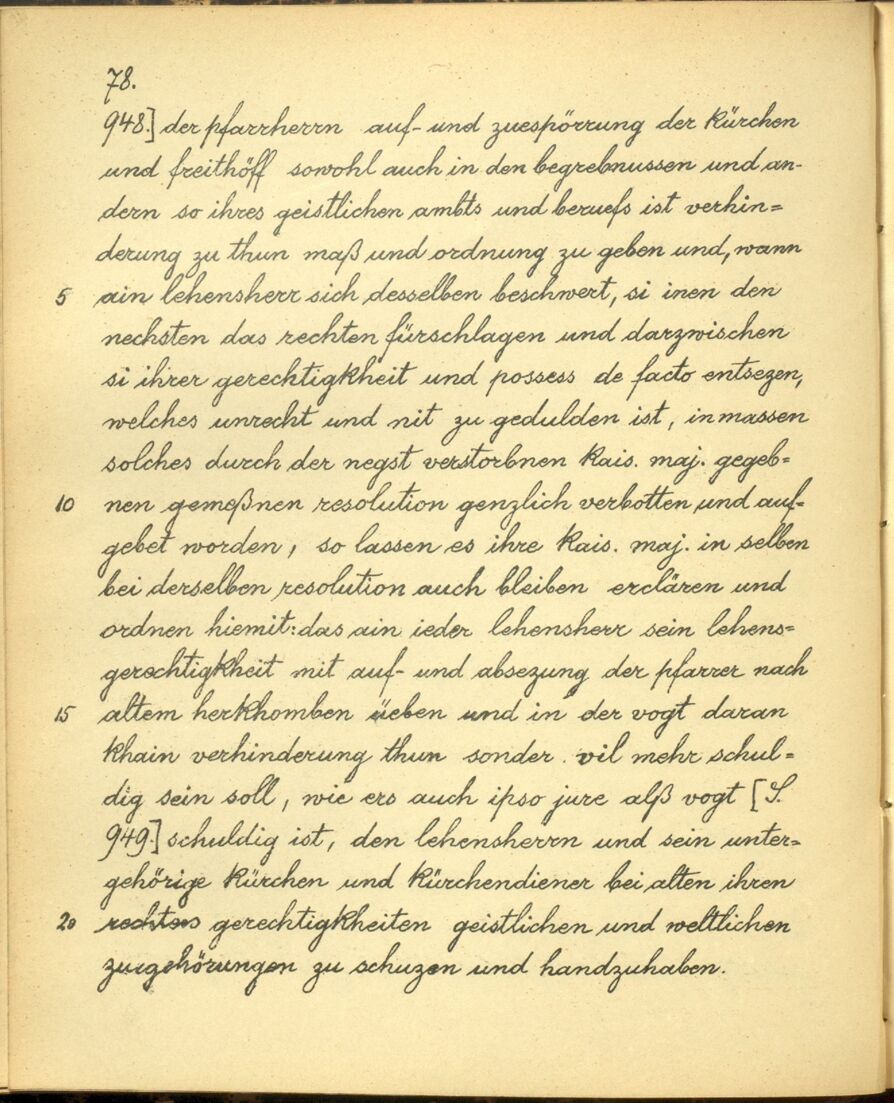 78.
948.] der pfarrherrn auf- und zuespörrung der kürchen
und freithöff sowohl auch in den begrebnussen und an-
dern so ihres geistlichen ambts und beruefs ist verhin=
derung zu thun maß und ordnung zu geben und, wann
5 ain lehensherr sich desselben beschwert, si inen den
nechsten das rechten fürschlagen und darzwischen
si ihrer gerechtigkheit und possess de facto entsezen,
welches unrecht und nit zu gedulden ist, inmassen
solches durch der negst verstorbnen kais. maj. gegeb=
10 nen gemeßnen resolution genzlich verbotten und auf-
gebet worden, so lassen es ihre kais. maj. in selben
bei derselben resolution auch bleiben erclären und
ordnen hiemit: das ain ieder lehensherr sein lehens=
gerechtigkheit mit auf- und absezung der pfarrer nach
15 altem herkhomben üeben und in der vogt daran
khain verhinderung thun sonder vil mehr schul=
dig sein soll, wie ers auch ipso jure alß vogt [S.
949.] schuldig ist, den lehensherrn und sein unter=
gehörige kürchen und kürchendiener bei alten ihren
20 rechten gerechtigkheiten geistlichen und weltlichen
zuegehörungen zu schuzen und handzuhaben.